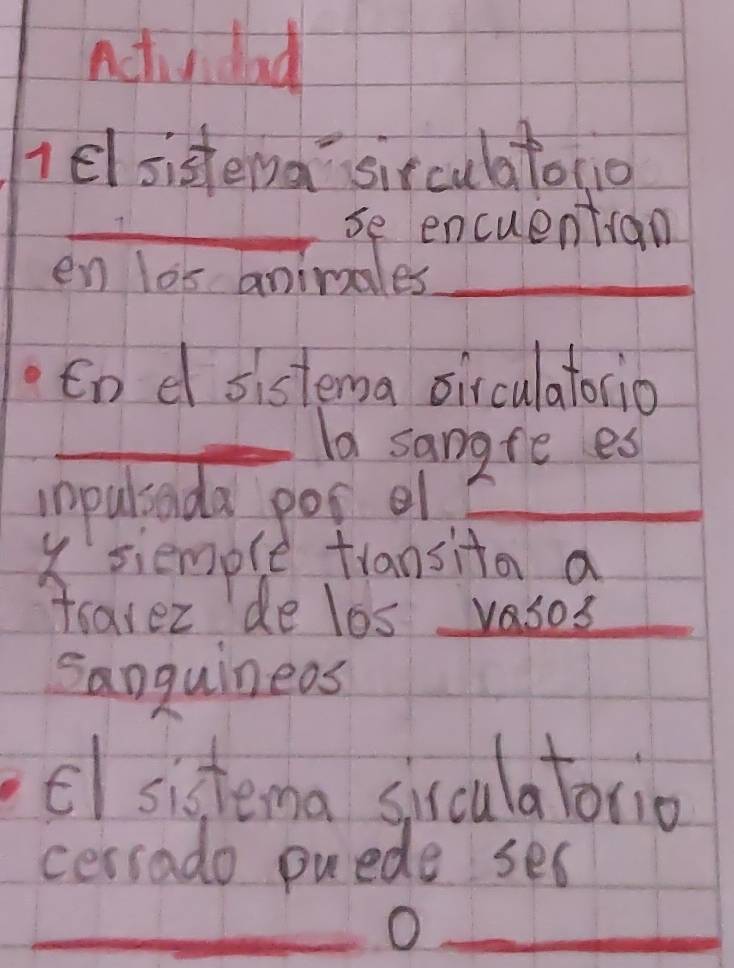 Actividad
1 El sistema sirculatorio
__________ se encuentran
en los animales __________
• En el sistema sirculatorio
__________ la sangre es
inpulsada por el __________
y siempre transita a
travez de los vasos
sanguineos
• El sistema sirculatorio
cerrado puede ser
__________ o __________